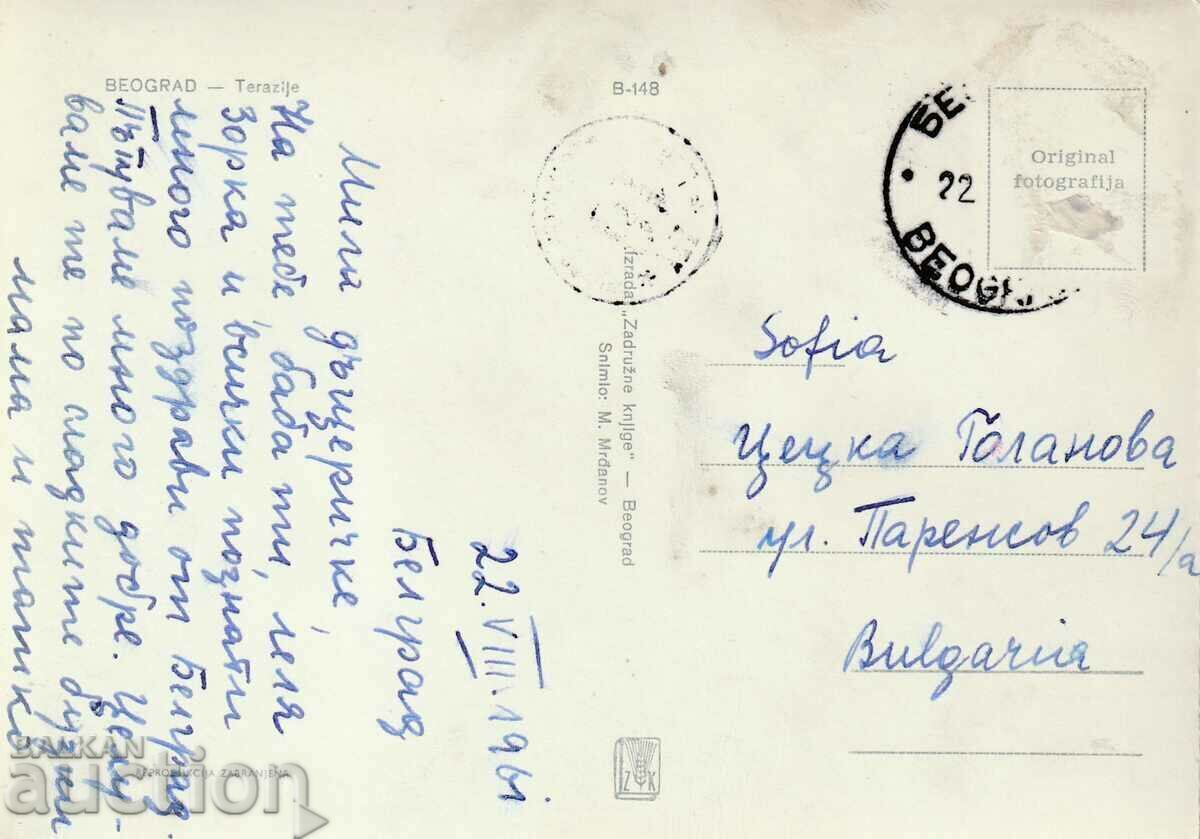 BEOGRAD — Terazije
B-148
22. VIII. 1961
Белград
Мили дъщеричке,
На тебе баба ти, леля
Зорка и всички познати
много поздрави от Белград.
Пътуваме много добре. Целу-
ваме те по сладките бузки
мама и татко
Izrada „Zadružne knjige" — Beograd
Snimio: M. Mrđanov
REPRODUKCIJA ZABRANJENA
Original
fotografija
22
Sofia
Цецка Голанова
ул. Паренсов 24/а
Bulgaria
Z K
BALKAN
auction